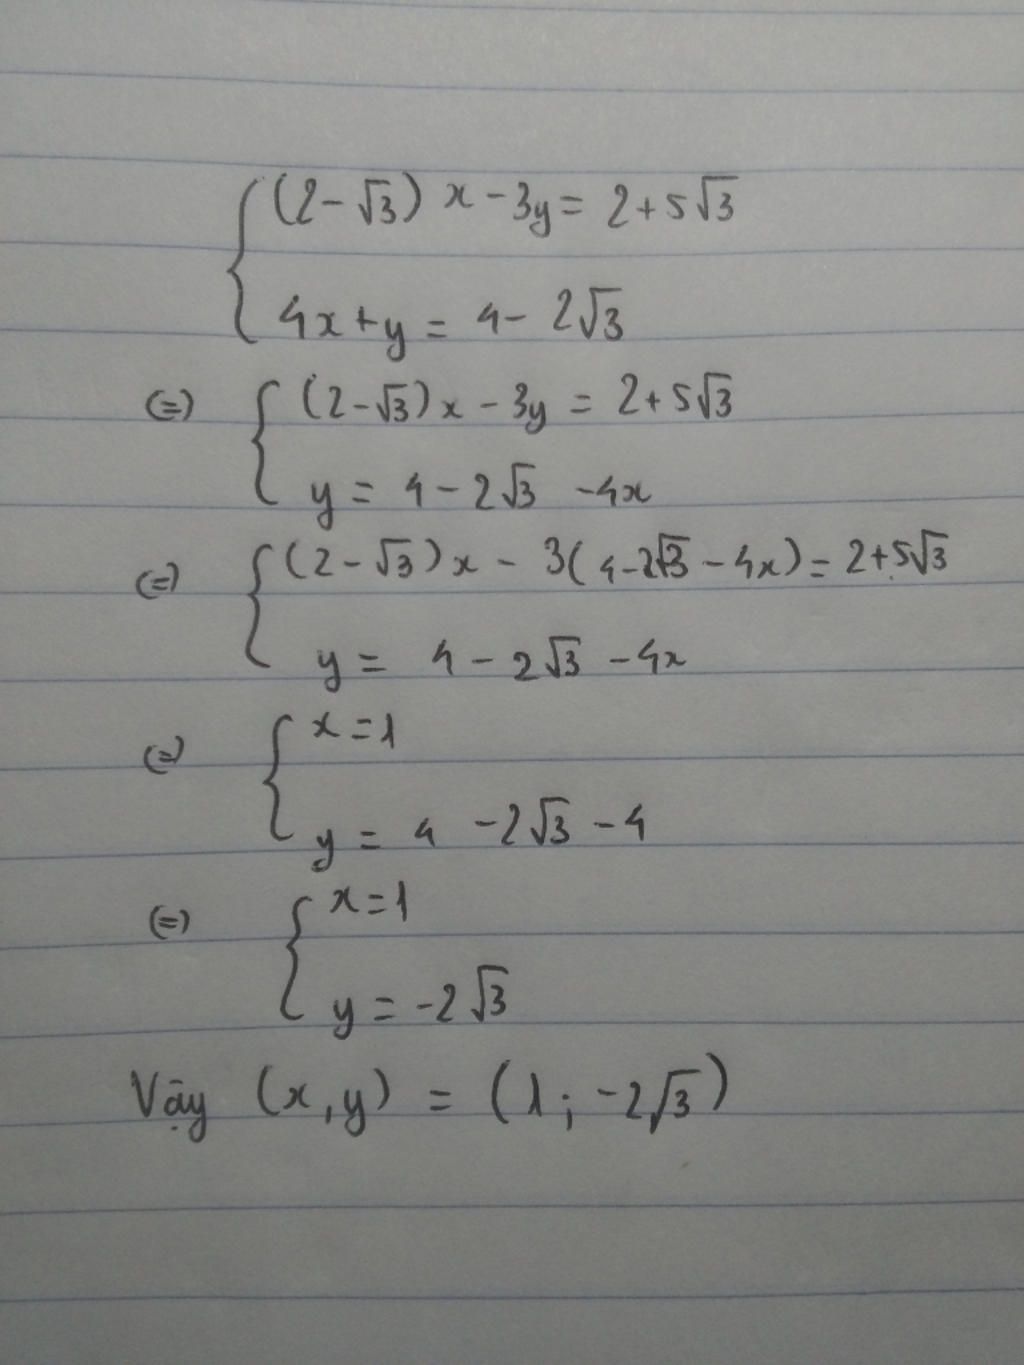 (2-√3) x - 3y = 2+5√3
4x+y = 4- 2√3
(=) (2-√3)x - 3y = 2+5√3
y = 4-2√3 -4x
(=) (2-√3)x - 3(4-2√3-4x) = 2+5√3
y = 4-2√3 -4x
(=) x=1
y = 4 -2√3 -4
(=) x=1
y = -2√3
Vậy (x,y) = (1; -2√3)